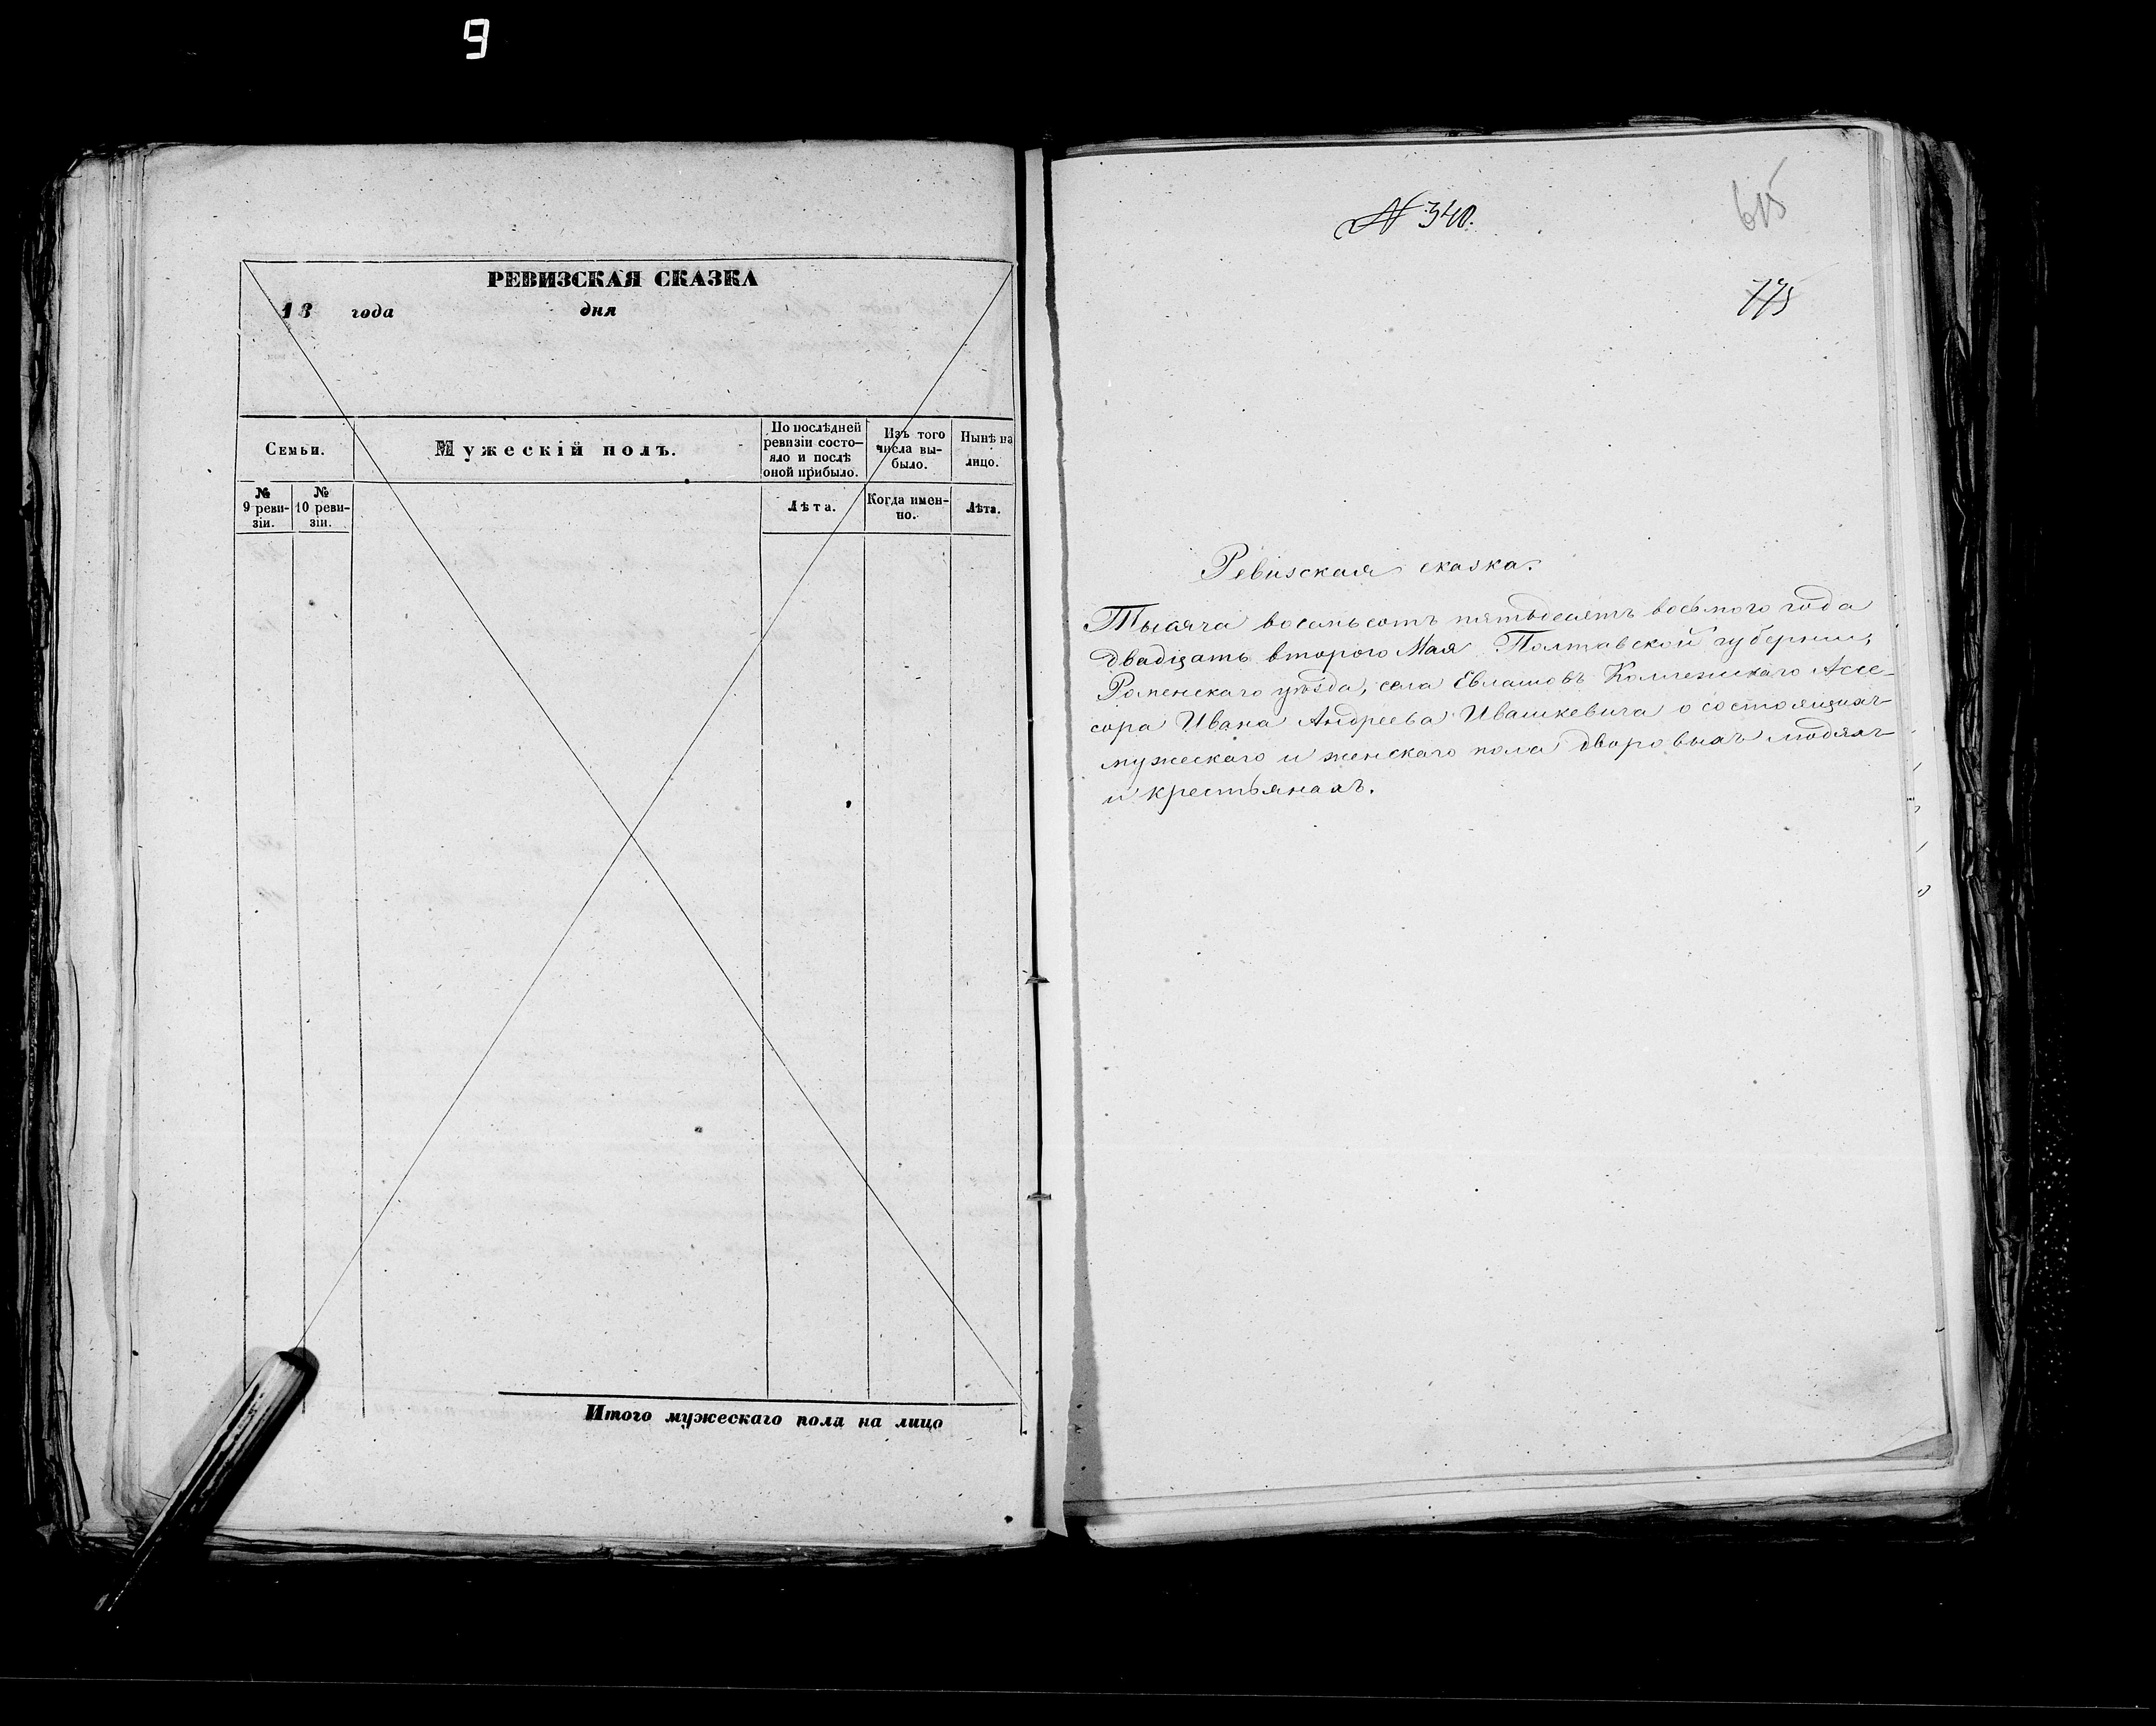 9
РЕВИЗСКАЯ СКАЗКА
18 года дня
Семьи.
Мужескій полъ.
По послѣдней
ревизіи состо-
яло и послѣ
оной прибыло.
Изъ того
числа вы-
было.
Нынѣ на
лицо.
№
9 реви-
зіи.
№
10 реви-
зіи.
Лѣта.
Когда имен-
но.
Лѣта.
Итого мужескаго пола на лицо
№ 340.
615
775
Ревизская сказка.
Тысяча восемьсотъ пятьдесятъ восьмого года
двадцать второго Мая Полтавской губерніи,
Роменскаго уѣзда, села Евлашовъ Коллежскаго Ассе-
сора Ивана Андреева Ивашкевича о состоящихъ
мужескаго и женскаго пола дворовыхъ людяхъ
и крестьянахъ.